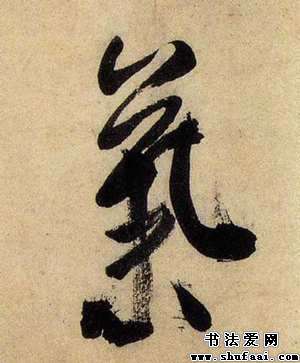 氣
书法爱网
www.shufaai.com